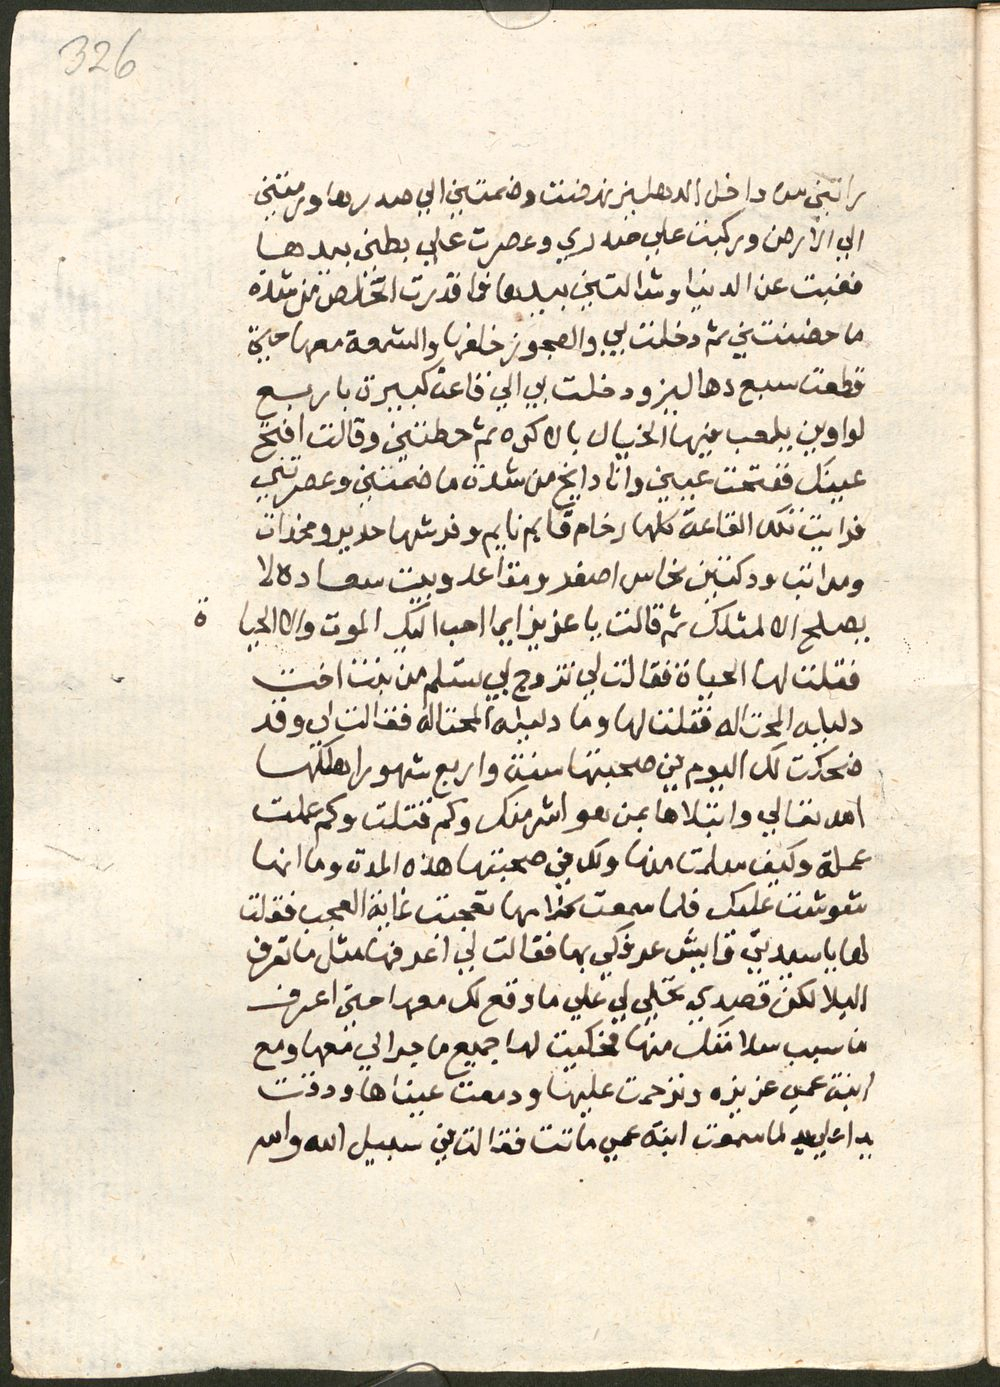 326
راتني من داخل الدهليز نهضت وضمتني الي صدرها ورمتني
الي الارض وركبت علي صدري وعصرت علي بطني بيدها
فغبت عن الدنيا وشالتني بيدها فما قدرت اتخلص من شدة
ما حضنتني ثم دخلت بي والعجوز خلفها والشمعة معها حتي
قطعت سبع دهاليز ودخلت بي الي قاعة كبيرة باربع
لواوين يلعب فيها الخيال بالاكره ثم حطتني وقالت افتح
عينك ففتحت عيني وانا دايخ من شدة ما ضمتني وعصرتني
فرايت تلك القاعة كلها رخام قايم نايم وفرشها حرير ومخدات
ومراتب ودكتين نحاس اصفر ومقاعد وبيت سعاده لا
يصلح الا لمثلك ثم قالت يا عزيز ايما احب اليك الموت والا الحياة
فقلت لها الحياة فقالت لي تزوج بي تسلم من بنت اخت
دليله المحتاله فقلت لها وما دليله المحتاله فقالت اي وقد
ضحكت لك اليوم في صحبتها سنة واربع شهور اهلكها
الله تعالي وابتلاها بمن هو اشر منك وكم قتلت وكم عملت
عملة وكيف سلمت منها ولك في صحبتها هذه المدة وما انها
شوشت عليك فلما سمعت كلامها تعجبت غاية العجب فقلت
لها يا سيدتي فايش عرفكي بها فقالت لي اعرفها مثل ما تعرف
البلا لكن قصدي تحكي لي علي ما وقع لك معها حتي اعرف
ما سبب سلامتك منها فحكيت لها جميع ما جرالي معها ومع
ابنة عمي عزيزه وترحمت عليها ودمعت عيناها ودقت
يدا علي يد لما سمعت ابنة عمي ماتت فقالت في سبيل الله والله